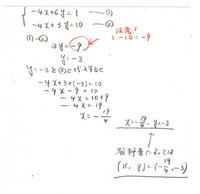 -4x+6y=1 —①
-4x+3y=10 —②
①-②
3y=-9
注意!
1-10=-9
y=-3
y=-3を②に代入すると
-4x+3×(-3)=10
-4x-9=10
-4x=10+9
-4x=19
x=-19/4
x=-19/4, y=-3
教科書によっては
(x, y)=(-19/4, -3)